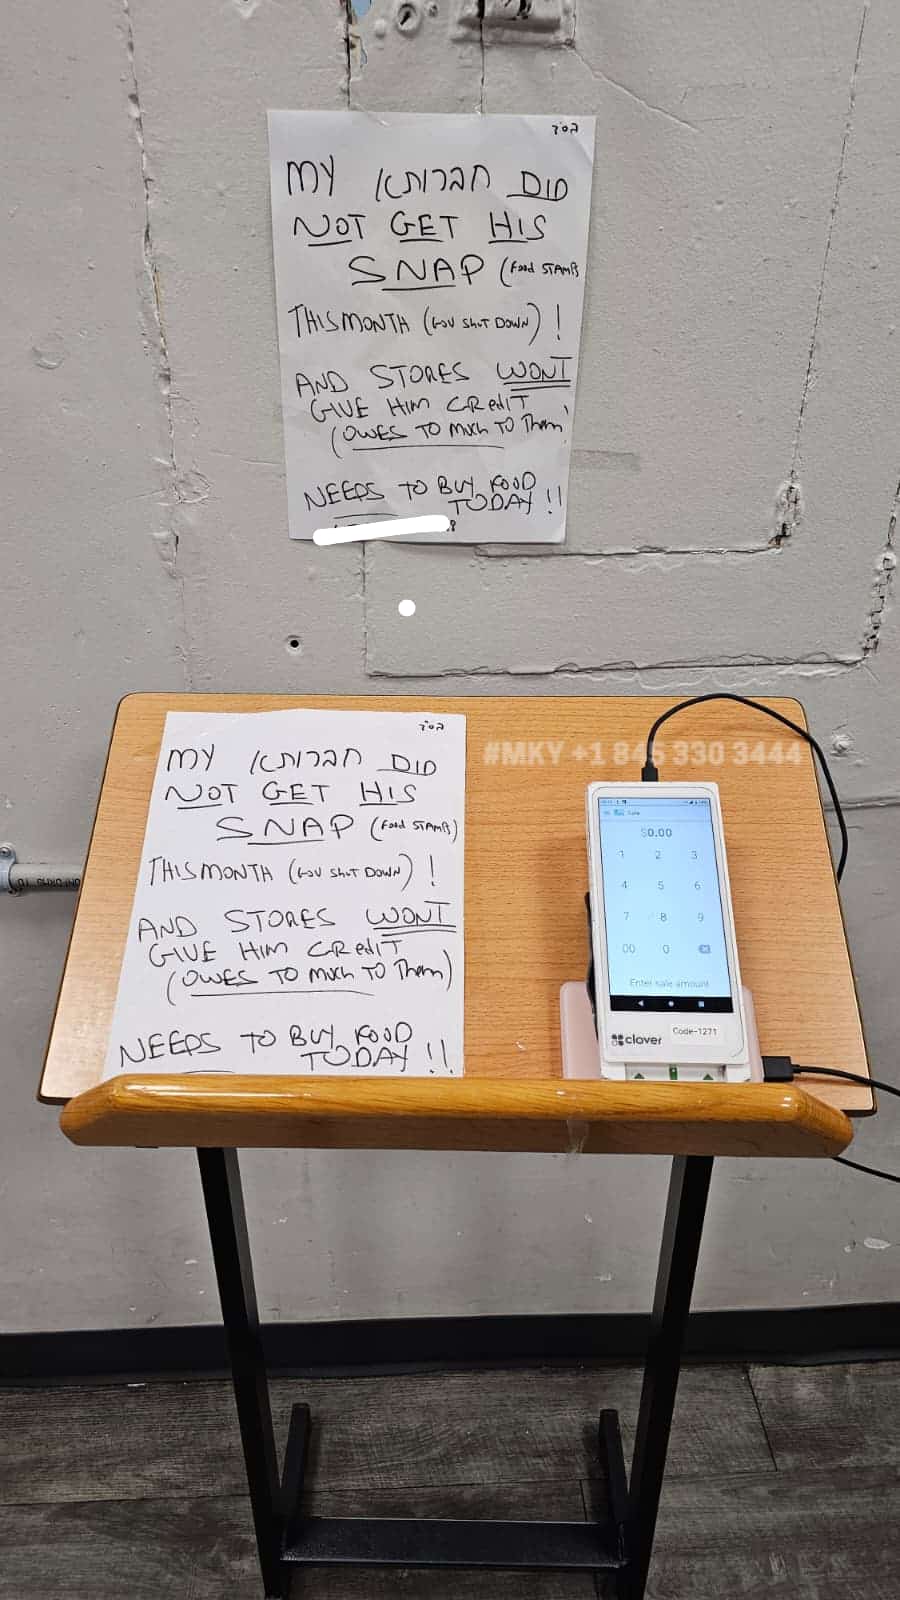 בס"ד
MY חברותא DID
NOT GET HIS
SNAP (Food STAMPS
THIS MONTH (GOV SHUT DOWN)!
AND STORES WONT
GIVE HIM CREdIT
(OWES TO MUCH TO Them)
NEEDS TO BUY FOOD
TODAY!!
בס"ד
MY חברותא DID
NOT GET HIS
SNAP (Food STAMPS)
THIS MONTH (GOV SHUT DOWN)!
AND STORES WONT
GIVE HIM CREdIT
(OWES TO MUCH TO Them)
NEEDS TO BUY FOOD
TODAY!!
#MKY +1 845 330 3444
Sale
$0.00
1 2 3
4 5 6
7 8 9
00 0
Enter sale amount
clover
Code-1271